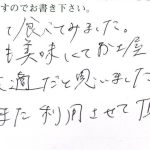 すのでお書き下さい。
て食べてみました。
も美味しくてお土産
に最適だと思いました
また利用させて頂